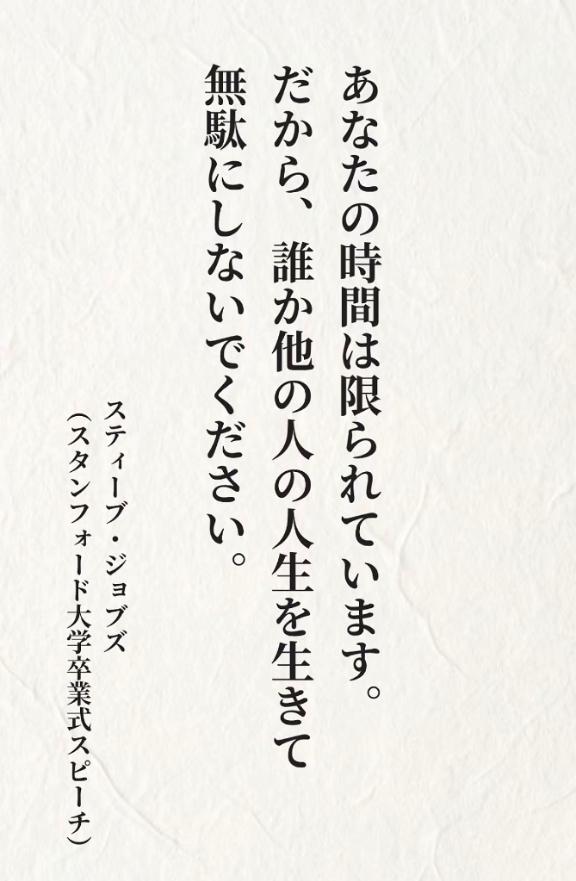 あなたの時間は限られています。
だから、誰か他の人の人生を生きて
無駄にしないでください。
スティーブ・ジョブズ
（スタンフォード大学卒業式スピーチ）